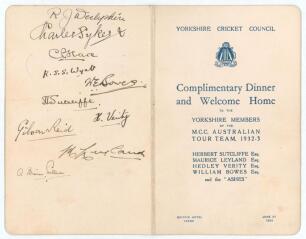 Charles Sykes
R.E.S. Wyatt
W E Bowes
H Sutcliffe
H. Verity
M Leyland
YORKSHIRE CRICKET COUNCIL
Complimentary Dinner
and Welcome Home
TO THE
YORKSHIRE MEMBERS
OF THE
M.C.C. AUSTRALIAN
TOUR TEAM, 1932-3
HERBERT SUTCLIFFE Esq.
MAURICE LEYLAND Esq.
HEDLEY VERITY Esq.
WILLIAM BOWES Esq.
and the "ASHES"
HOTEL
LEEDS
JUNE
1933